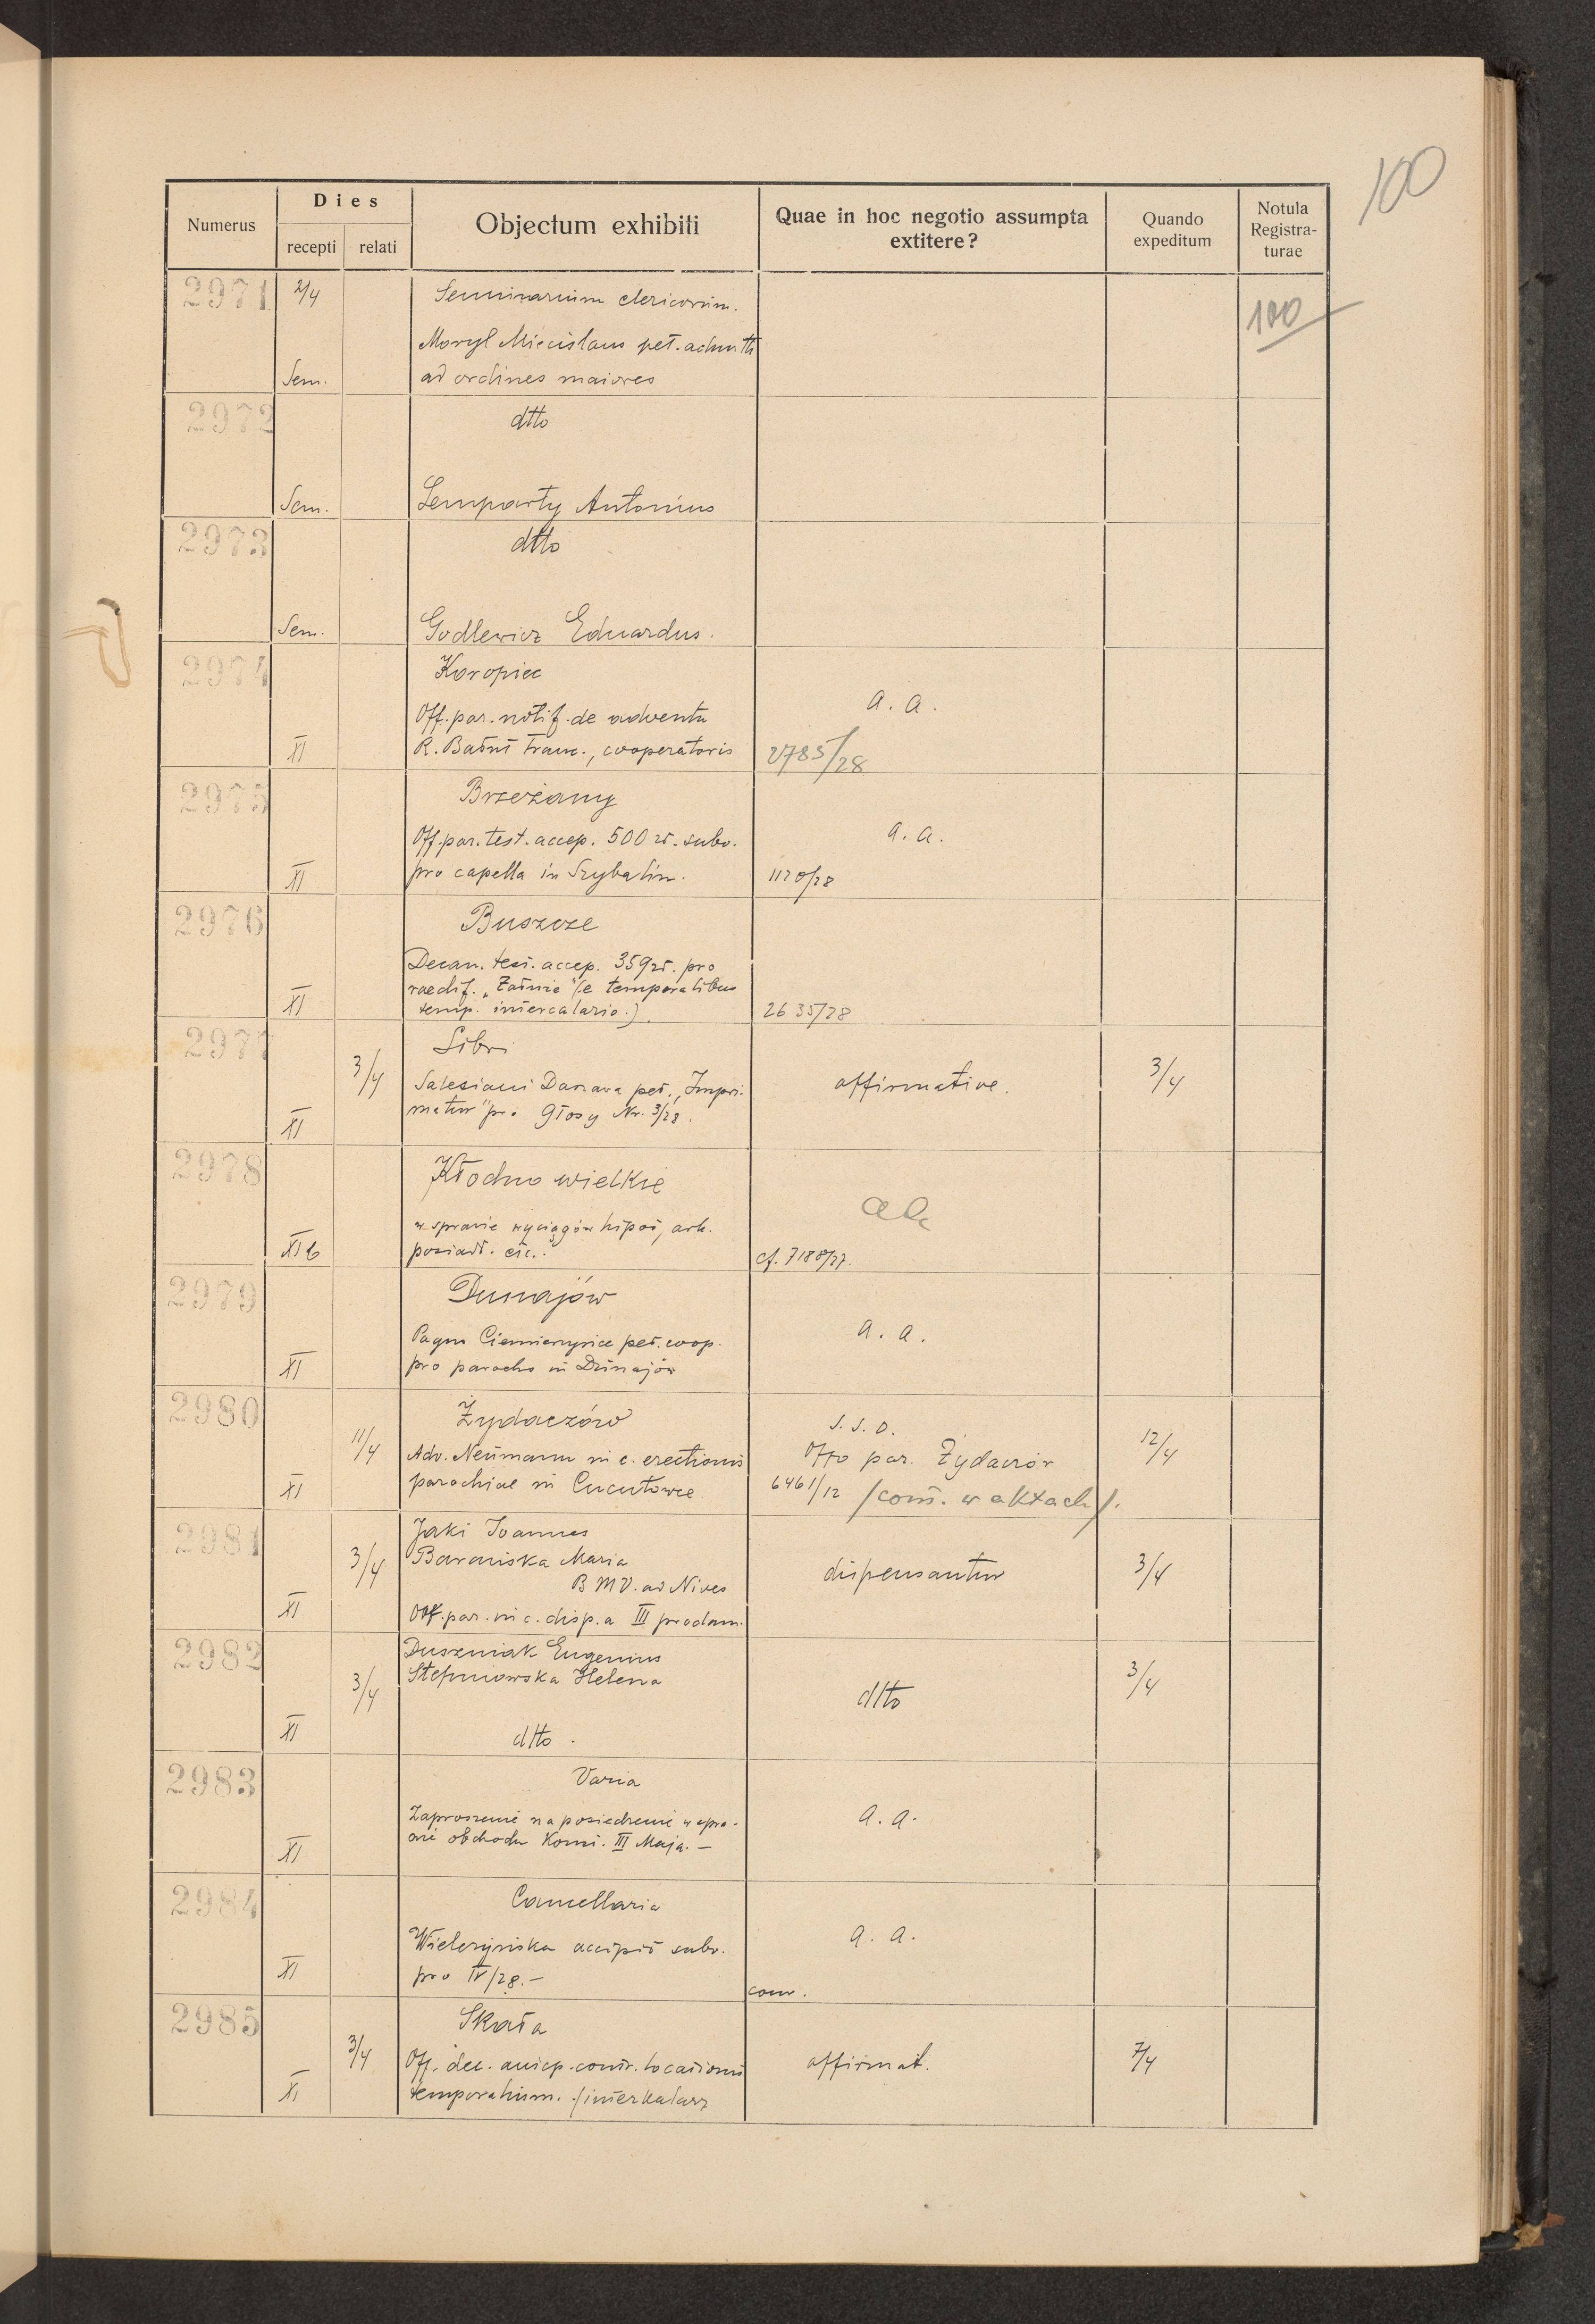 100
Numerus
Dies
recepti
relati
Objectum exhibiti
Quae in hoc negotio assumpta
extitere?
Quando
expeditum
Notula
Registra-
turae
2971
2/4
Seminarium clericorum.
100
Moryl Miecislaus pet. admitti
Sem.
ad ordines maiores
2972
dtto
Sem.
Lemparty Antonius
2973
dtto
Sem.
Godlewicz Eduardus.
2974
Koropiec
Off. par. notif. de adventu
a. a.
XI
R. Franc., cooperatoris
2785/28
2975
Brzeżany
Off. par. test. accep. 500 zł. subv.
a. a.
XI
pro capella in Szybalin.
1120/28
2976
Buszcze
Decan. test. accep. 359 zł. pro
raedif. (e temporalibus
XI
temp. intercalario.)
2635/28
2977
Libri
3/4
Salesiani Daszawa pet. „Impri-
affirmative.
3/4
XI
matur" pro Głosy Nr. 3/28.
2978
Kłodno wielkie
aa
w sprawie wyciągów hipot, ark.
XI b
posiadł. etc.
cf. 7188/27.
2979
Dunajów
Pagus Ciemierzyńce pet. coop.
a. a.
XI
pro parocho in Dunajów
2980
Żydaczów
S. S. O.
11/4
Adv. Neumann in c. erectionis
Offo par. Żydaczów
12/4
XI
parochiae in Cucułowce.
6461/12 /com. w aktach/.
2981
Jaki Joannes
3/4
Barańska Maria
dispensantur
3/4
B M V. ad Nives
XI
Off. par. in c. disp. a III proclam.
2982
Duszniak Eugenius
3/4
Stefurowska Helena
dtto
3/4
XI
dtto.
2983
Varia
Zaproszenie na posiedzenie w spra-
a. a.
XI
wie obchodu Konst. III Maja.—
2984
Cancellaria
Wieleżyńska accipit subv.
a. a.
XI
pro IV/28.—
conv.
2985
Skała
3/4
Off. dec. contr. locationis
affirmat.
7/4
XI
temporalium. /interkalarz